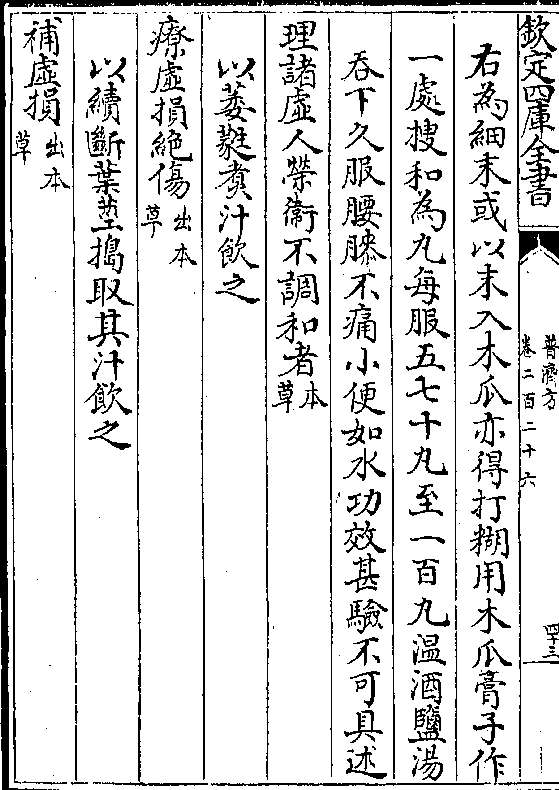 欽定四庫全書
普濟方
卷二百二十六
四十三
右為細末或以末入木瓜亦得打糊用木瓜膏子作
一處搜和為丸每服五七十丸至一百丸溫酒鹽湯
吞下久服腰膝不痛小便如水功效甚驗不可具述
理諸虛人榮衛不調和者本草
以萎蕤煑汁飲之
療虛損絶傷出本草
以續斷葉莖搗取其汁飲之
補虛損出本草